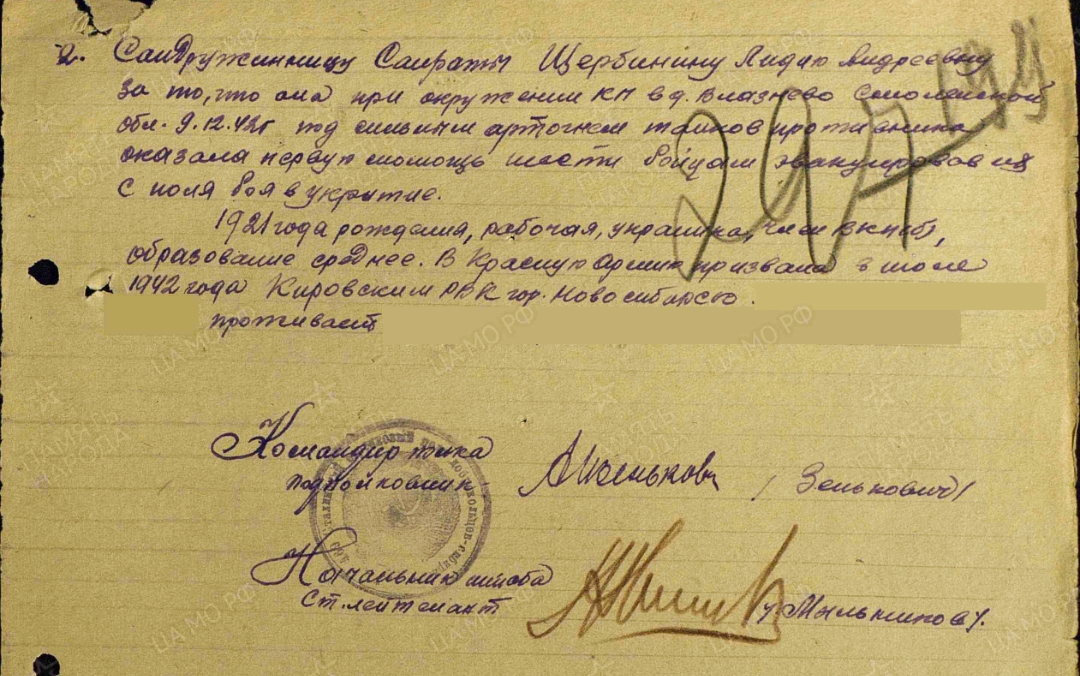 2. Сандружинницу Санроты Щербинину Лидию Андреевну
за то, что она при окружении КП в д. Влазнево Смоленской
обл. 9.12.42г под сильным артогнем танков противника
оказала первую помощь шести бойцам эвакуировав их
с поля боя в укрытие.
1921 года рождения, рабочая, украинка, член ВКП(б),
образование среднее. В Красную Армию призвана в июле
1942 года Кировским РВК гор. Новосибирск.
проживает
Командир полка
подполковник / Зенькович /
Начальник штаба
Ст. лейтенант / Мыльников /.
297
ПАМЯТЬ НАРОДА
ЦА МО РФ